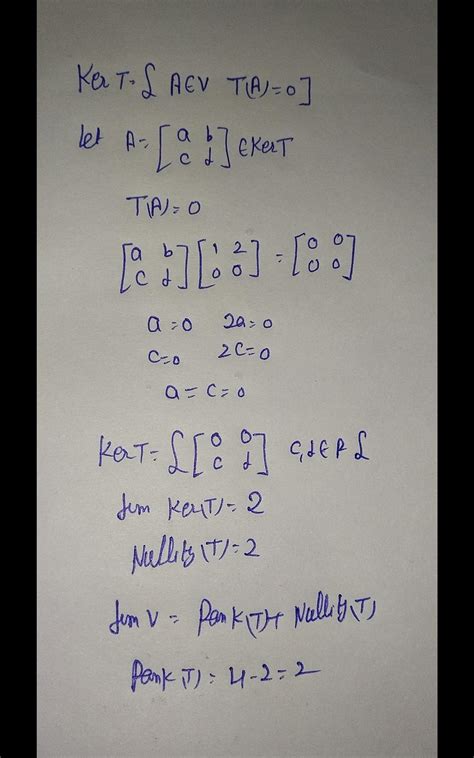 Ker T = { A ∈ V T(A) = 0 ]
let A = [a b; c d] ∈ Ker T
T(A) = 0
[a b; c d] [1 2; 0 0] = [0 0; 0 0]
a = 0 2a = 0
c = 0 2c = 0
a = c = 0
Ker T = { [0 0; c d] c, d ∈ R {
dim Ker(T) = 2
Nullity(T) = 2
dim V = Rank(T) + Nullity(T)
Rank(T) = 4 - 2 = 2